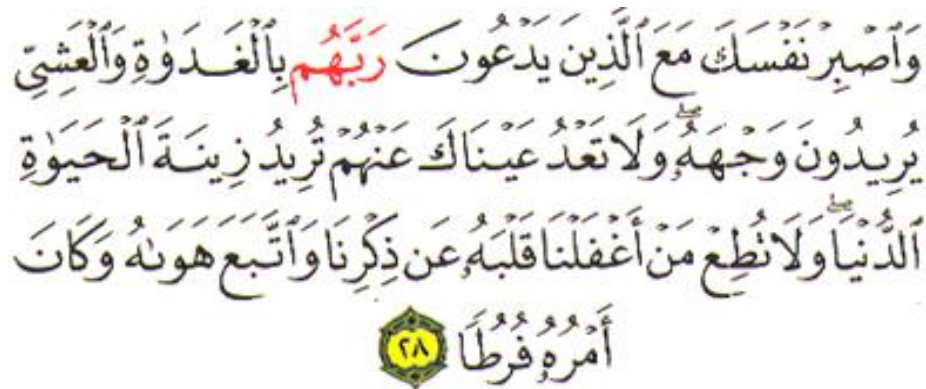 وَٱصۡبِرۡ نَفۡسَكَ مَعَ ٱلَّذِينَ يَدۡعُونَ رَبَّهُم بِٱلۡغَدَوٰةِ وَٱلۡعَشِيِّ
يُرِيدُونَ وَجۡهَهُۥۖ وَلَا تَعۡدُ عَيۡنَاكَ عَنۡهُمۡ تُرِيدُ زِينَةَ ٱلۡحَيَوٰةِ
ٱلدُّنۡيَاۖ وَلَا تُطِعۡ مَنۡ أَغۡفَلۡنَا قَلۡبَهُۥ عَن ذِكۡرِنَا وَٱتَّبَعَ هَوَىٰهُ وَكَانَ
أَمۡرُهُۥ فُرُطٗا ٢٨